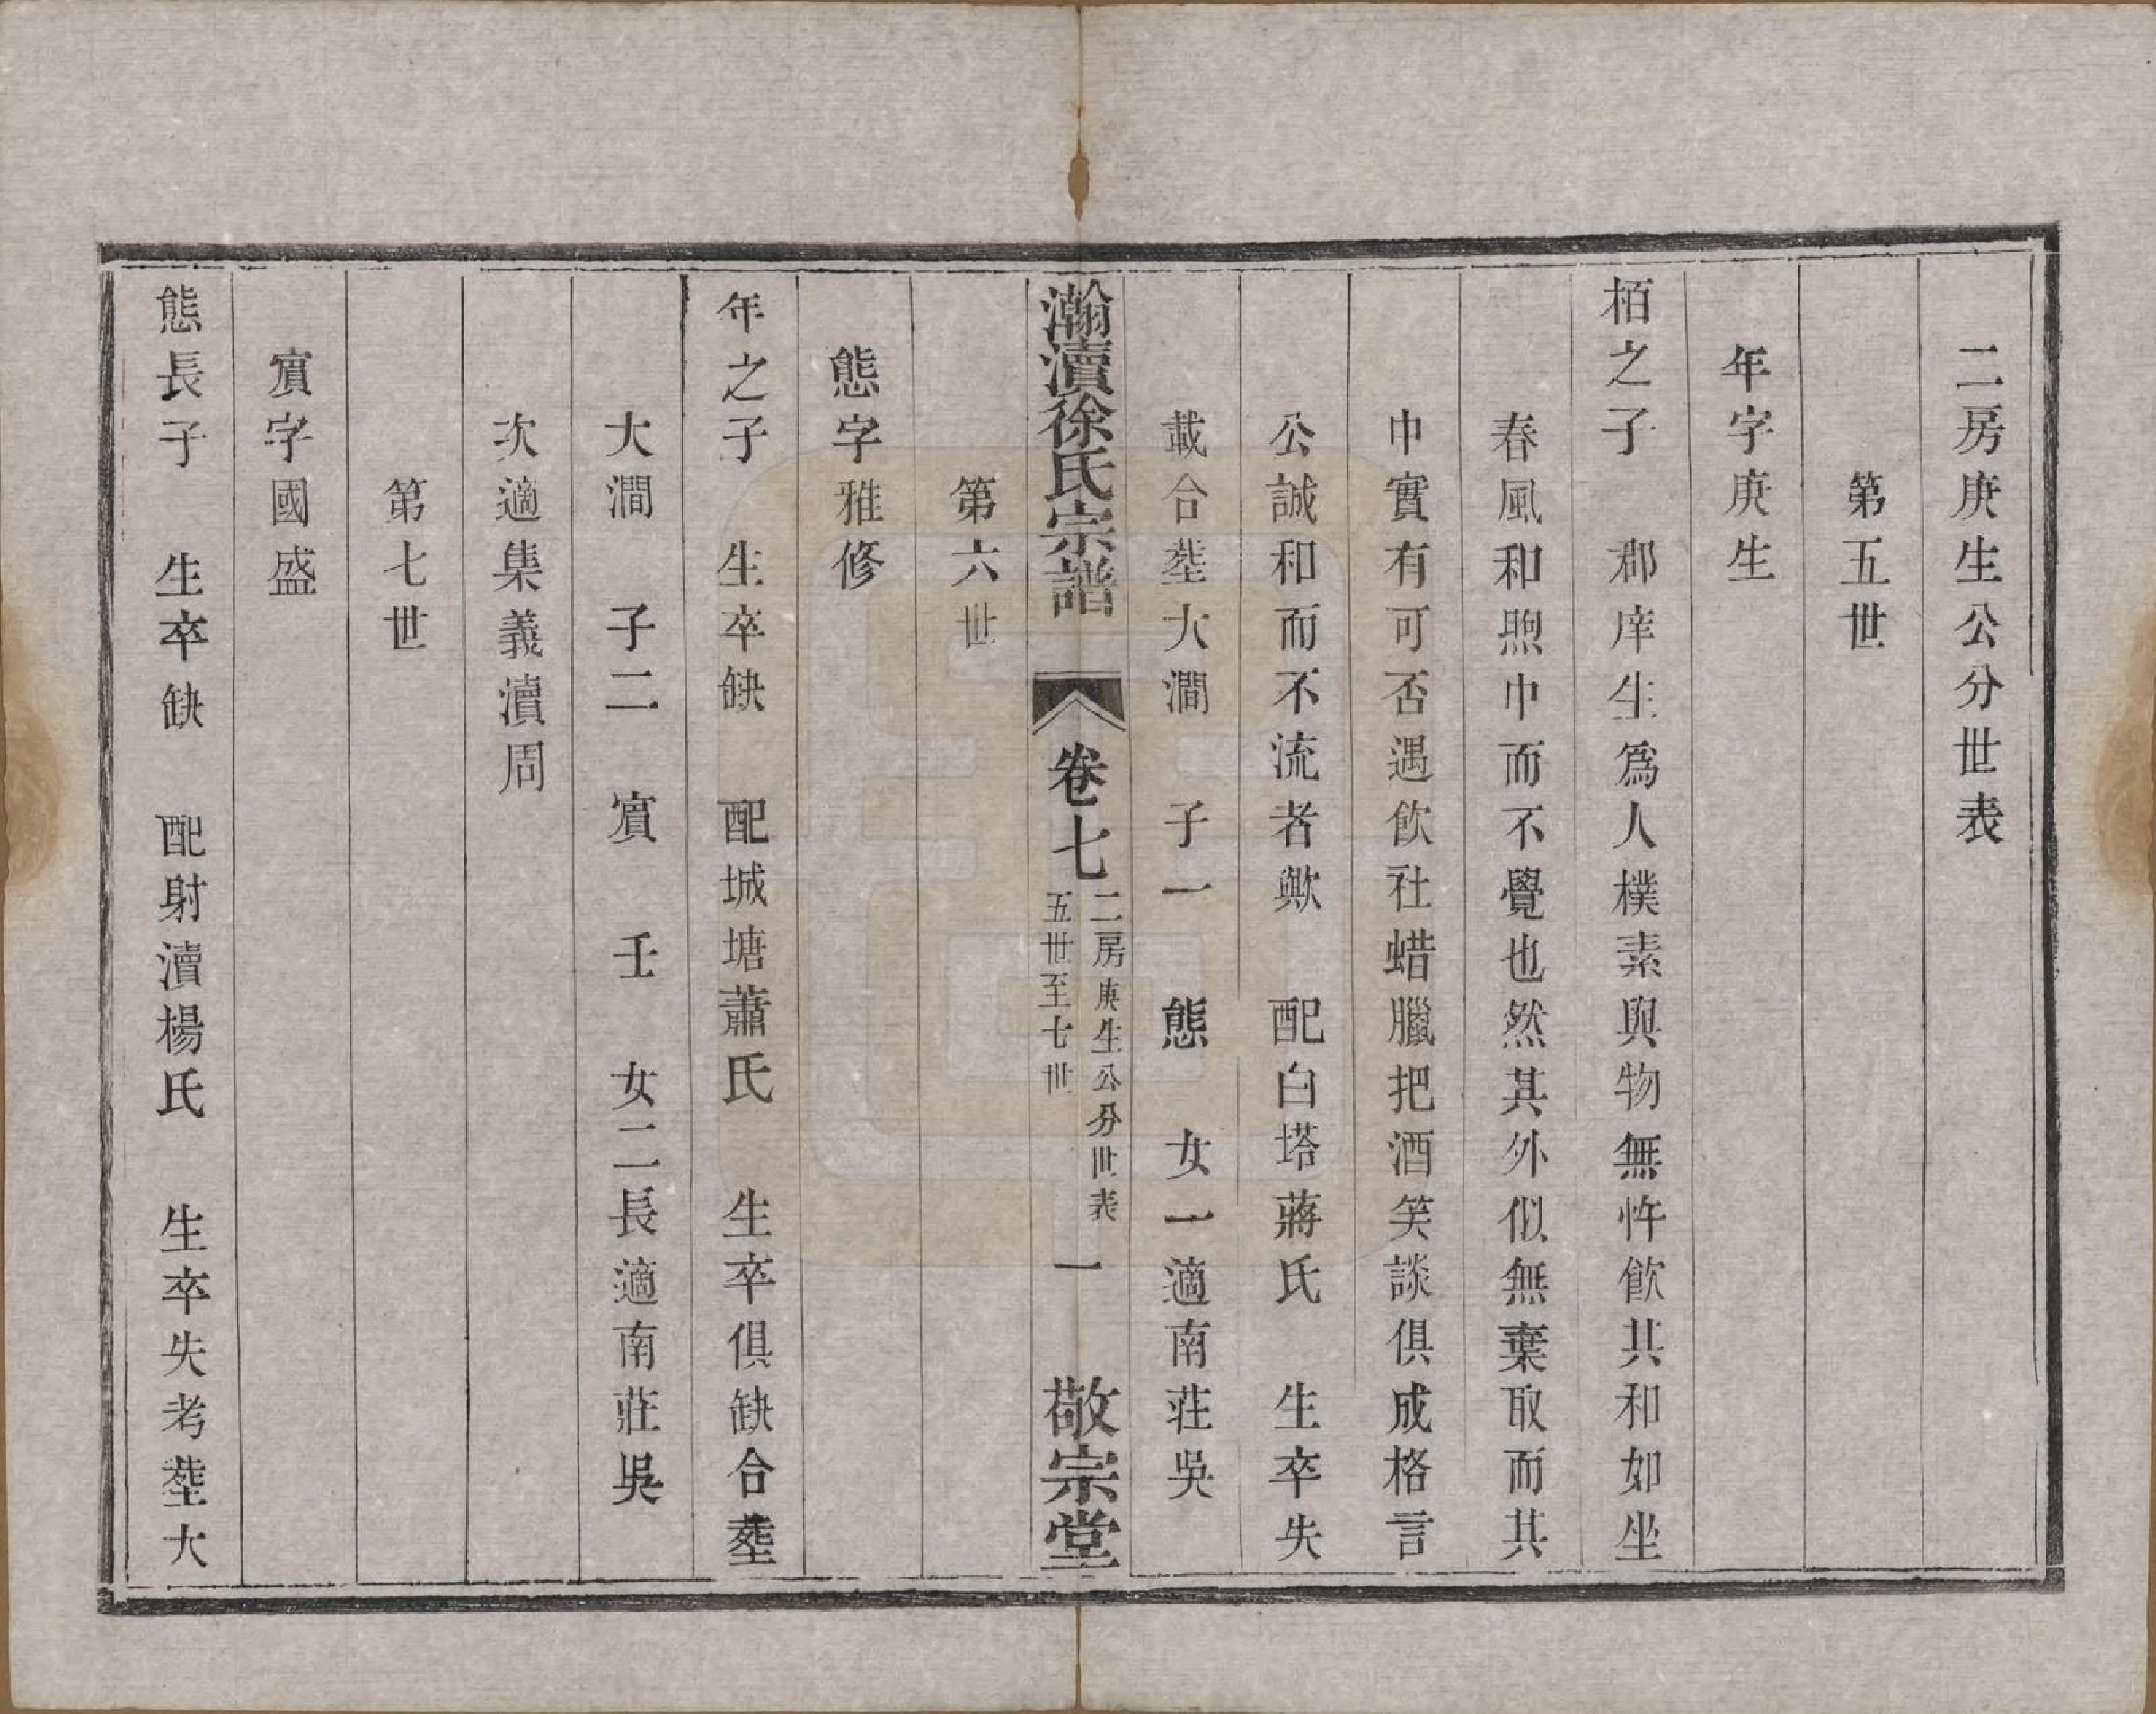 二房庚生公分世表
第五世
年字庚生
栢之子　郡庠生爲人樸素與物無忤飮其和如坐
春風和煦巾而不覺也然其外似無棄取而其
巾實有可否遇飮社蜡臘把酒笑談俱成格言
公誠和而不流者歟　配白塔蔣氏　生卒失
載合塟大澗　子一　態　女一適南莊吳
瀚瀆徐氏宗譜　卷七　二房庚生公分世表
五世至七世　一　敬宗堂
第六世
態字雅修
年之子　生卒缺　配城塘蕭氏　生卒俱缺合塟
大澗　子二　賔　壬　女二長適南莊吳
次適集義瀆周
第七世
賔字國盛
態長子　生卒缺　配射瀆楊氏　生卒失考塟大